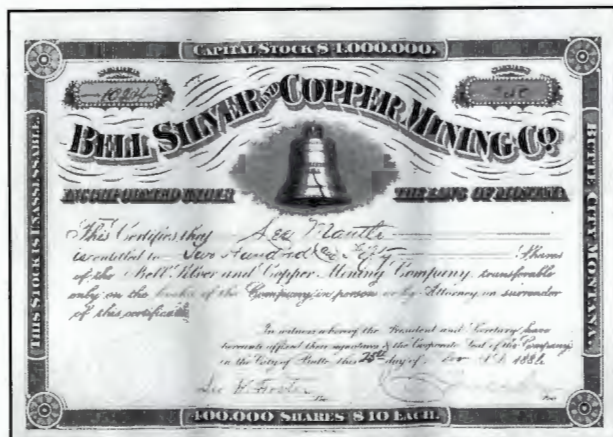 CAPITAL STOCK $ 4.000.000.
BELL SILVER AND COPPER MINING CO.
INCORPORATED UNDER THE LAWS OF MONTANA
This Certifies that Lee Mantle
is entitled to Two Hundred Fifty Shares
of the Bell Silver and Copper Mining Company, transferable
only on the books of the Company in person or by Attorney on surrender
of this certificate
In witness whereof the President and Secretary have
hereunto affixed their signatures & the Corporate Seal of the Company
in the City of Butte this 25th day of A.D. 188
400.000 SHARES $ 10 EACH.
THIS STOCK IS UNASSESSABLE.
BUTTE CITY MONTANA.